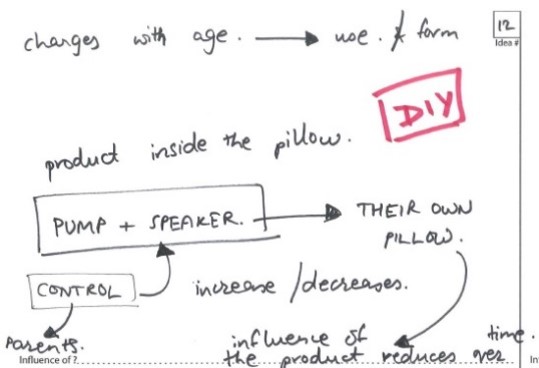 changes with age. → use. & form
12
Idea #
DIY
product inside the pillow.
PUMP + SPEAKER. → THEIR OWN
PILLOW.
CONTROL increase / decreases.
Parents.
influence of
the product reduces over time.
Influence of ?
In